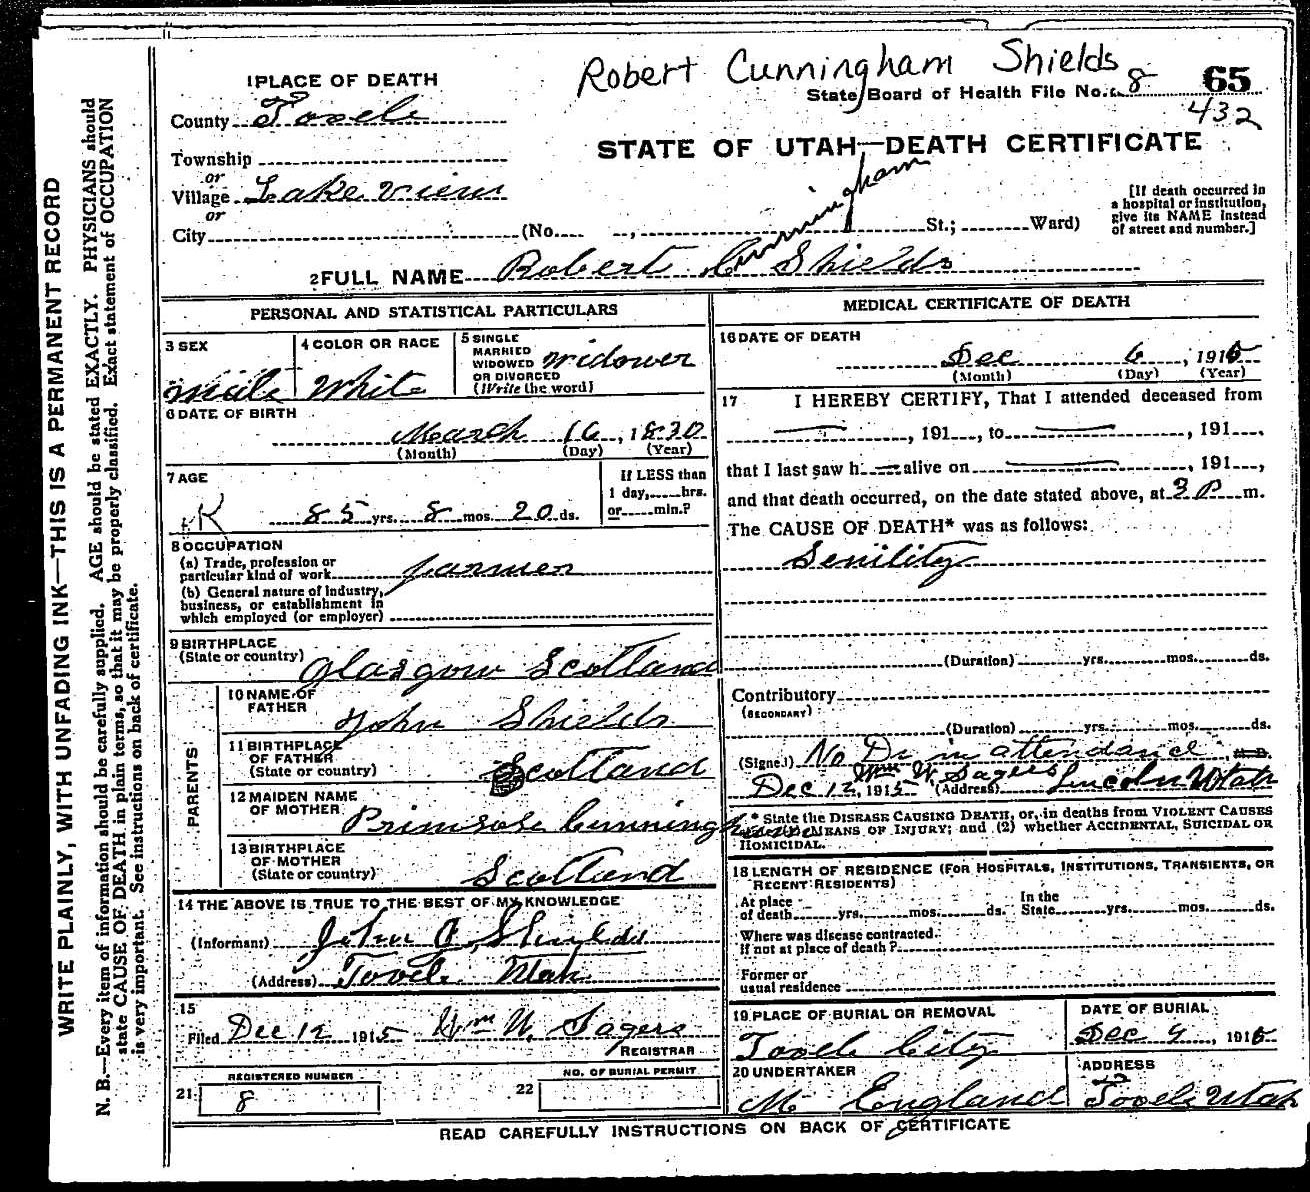 Robert Cunningham Shields
1 PLACE OF DEATH
State Board of Health File No. 8 65
432
County Tooele
STATE OF UTAH—DEATH CERTIFICATE
Township
or
Village Lake view
or
City (No. , St.; Ward)
[If death occurred in
a hospital or institution,
give its NAME instead
of street and number.]
Cunningham
2 FULL NAME Robert C Shields
PERSONAL AND STATISTICAL PARTICULARS
3 SEX
Male
4 COLOR OR RACE
White
5 SINGLE
MARRIED
WIDOWED
OR DIVORCED
(Write the word)
Widower
6 DATE OF BIRTH
March 16, 1830
(Month) (Day) (Year)
7 AGE
85 yrs. 8 mos. 20 ds.
If LESS than
1 day, hrs.
or min.?
8 OCCUPATION
(a) Trade, profession or
particular kind of work farmer
(b) General nature of industry,
business, or establishment in
which employed (or employer)
9 BIRTHPLACE
(State or country) Glasgow Scotland
PARENTS
10 NAME OF
FATHER
John Shields
11 BIRTHPLACE
OF FATHER
(State or country) Scotland
12 MAIDEN NAME
OF MOTHER
Primrose Cunningham
13 BIRTHPLACE
OF MOTHER
(State or country) Scotland
14 THE ABOVE IS TRUE TO THE BEST OF MY KNOWLEDGE
(Informant) John C Shields
(Address) Tooele Utah
15
Filed Dec 12 1915 Wm W. Sagers
REGISTRAR
REGISTERED NUMBER
21 8
NO. OF BURIAL PERMIT
22
MEDICAL CERTIFICATE OF DEATH
16 DATE OF DEATH
Dec 6, 1915
(Month) (Day) (Year)
17 I HEREBY CERTIFY, That I attended deceased from
, 191 , to , 191 ,
that I last saw h alive on , 191 ,
and that death occurred, on the date stated above, at 3 P m.
The CAUSE OF DEATH* was as follows:
Senility
(Duration) yrs. mos. ds.
Contributory
(SECONDARY)
(Duration) yrs. mos. ds.
(Signed) No Dr in attendance M. D.
Wm W Sagers
Dec 12, 1915 (Address) Lincoln Utah
* State the DISEASE CAUSING DEATH, or, in deaths from VIOLENT CAUSES
MEANS OF INJURY; and (2) whether ACCIDENTAL, SUICIDAL OR
HOMICIDAL.
18 LENGTH OF RESIDENCE (FOR HOSPITALS, INSTITUTIONS, TRANSIENTS, OR
RECENT RESIDENTS)
At place
of death yrs. mos. ds.
In the
State yrs. mos. ds.
Where was disease contracted
if not at place of death?
Former or
usual residence
19 PLACE OF BURIAL OR REMOVAL
Tooele City
DATE OF BURIAL
Dec 9, 1915
20 UNDERTAKER
M England
ADDRESS
Tooele Utah
READ CAREFULLY INSTRUCTIONS ON BACK OF CERTIFICATE
WRITE PLAINLY, WITH UNFADING INK—THIS IS A PERMANENT RECORD
N. B.—Every item of information should be carefully supplied. AGE should be stated EXACTLY. PHYSICIANS should
state CAUSE OF DEATH in plain terms, so that it may be properly classified. Exact statement of OCCUPATION
is very important. See instructions on back of certificate.